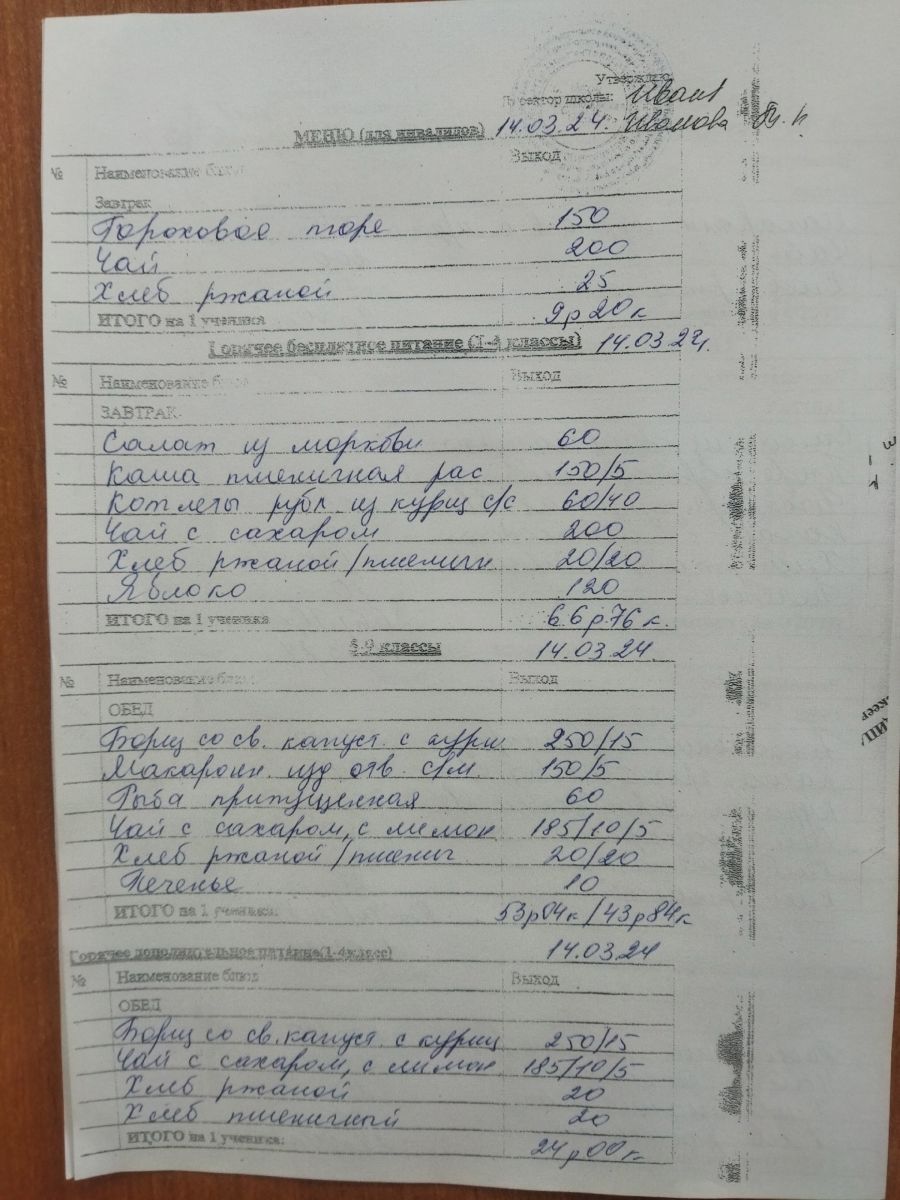 Утверждаю
Директор школы: Иван
МЕНЮ (для инвалидов) 14.03.24. Иванова
№ Наименование блюд Выход
Завтрак
Гороховое пюре 150
Чай 200
Хлеб ржаной 25
ИТОГО на 1 ученика 9р20к
Горячее бесплатное питание (1-4 классы) 14.03.24г.
№ Наименование блюд Выход
ЗАВТРАК
Салат из моркови 60
Каша пшеничная рас 150/5
Котлеты рубл из куриц с/с 60/40
Чай с сахаром 200
Хлеб ржаной/пшеничн 20/20
Яблоко 120
ИТОГО на 1 ученика 66р76к.
5-9 классы 14.03.24.
№ Наименование блюд Выход
ОБЕД
Борщ со св. капуст. с куриц 250/15
Макаронн. изд отв. с/м. 150/5
Рыба притущенная 60
Чай с сахаром, с лимон 185/10/5
Хлеб ржаной/пшенич 20/20
Печенье 10
ИТОГО на 1 ученика: 53р04к/43р84к
Горячее дополнительное питание(1-4класс) 14.03.24
№ Наименование блюд Выход
ОБЕД
Борщ со св. капуст. с куриц 250/15
Чай с сахаром, с лимон 185/10/5
Хлеб ржаной 20
Хлеб пшеничный 20
ИТОГО на 1 ученика: 24р00к.